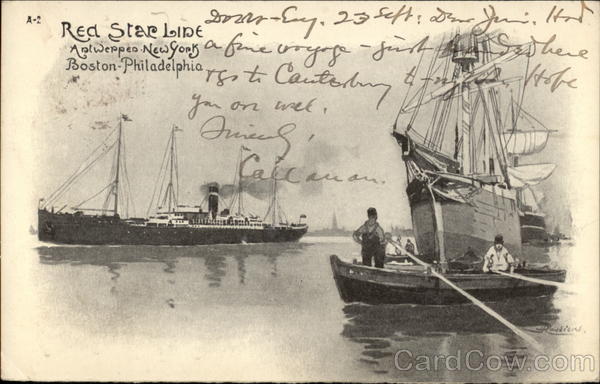 A-2
Red Star Line
Antwerpen-New York
Boston-Philadelphia
Dover-Eng. 23 Sept. Dear Jim. Had
a fine voyage - just landed here
& go to Canterbury to-night. Hope
you are well.
Sincerely,
Callanan.
CardCow.com